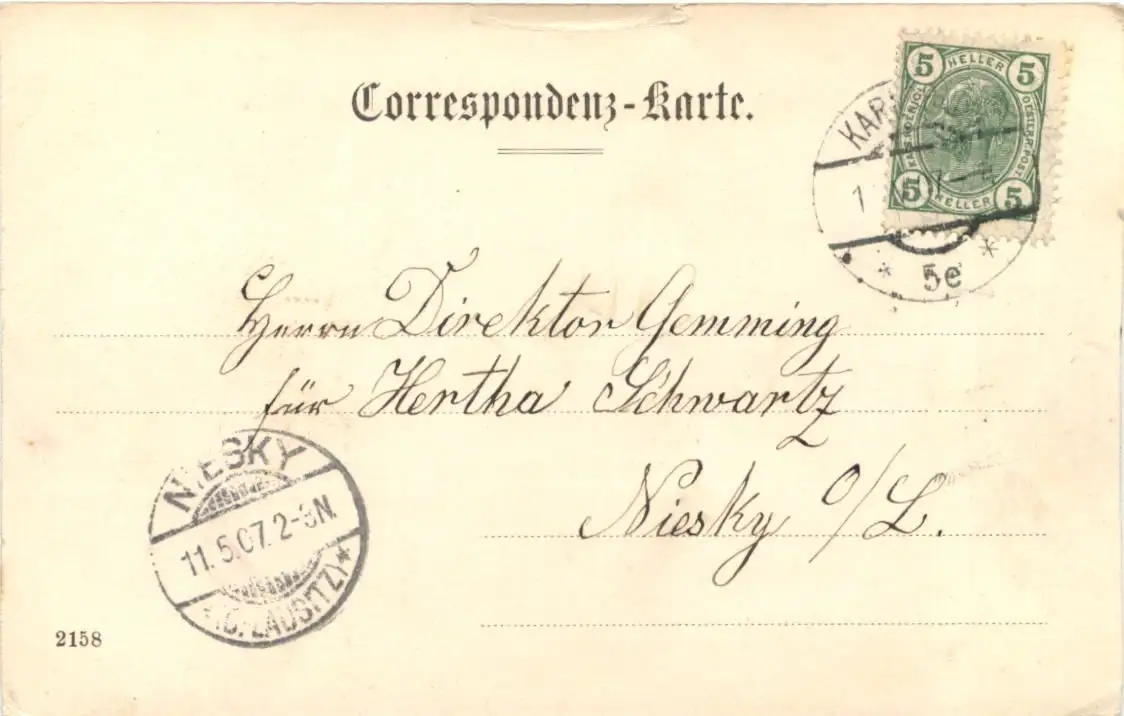 Correspondenz-Karte.
5 HELLER 5
KAIS. KOENIGL. OESTERR. POST
5 HELLER 5
KAR
1
5e
Herrn Direktor Gemming
für Hertha Schwartz
Niesky O/L.
NIESKY
11.5.07.2-3N.
(O. LAUSITZ)
2158